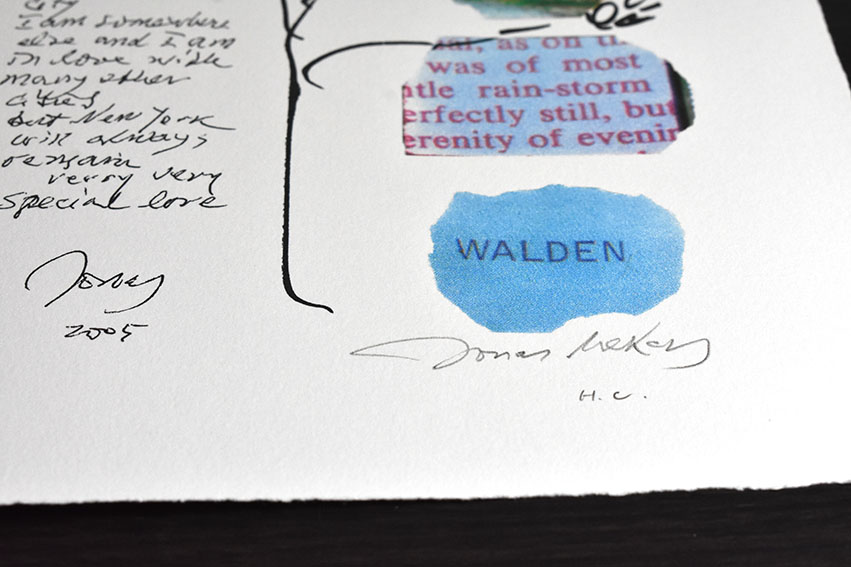 city
I am somewhere
else and I am
in love with
many other
cities
but New York
will always
remain
very very
special love
Jonas
2005
as on
was of most
ntle rain-storm
erfectly still, but
erenity of evenin
WALDEN
Jonas Mekas
H.C.